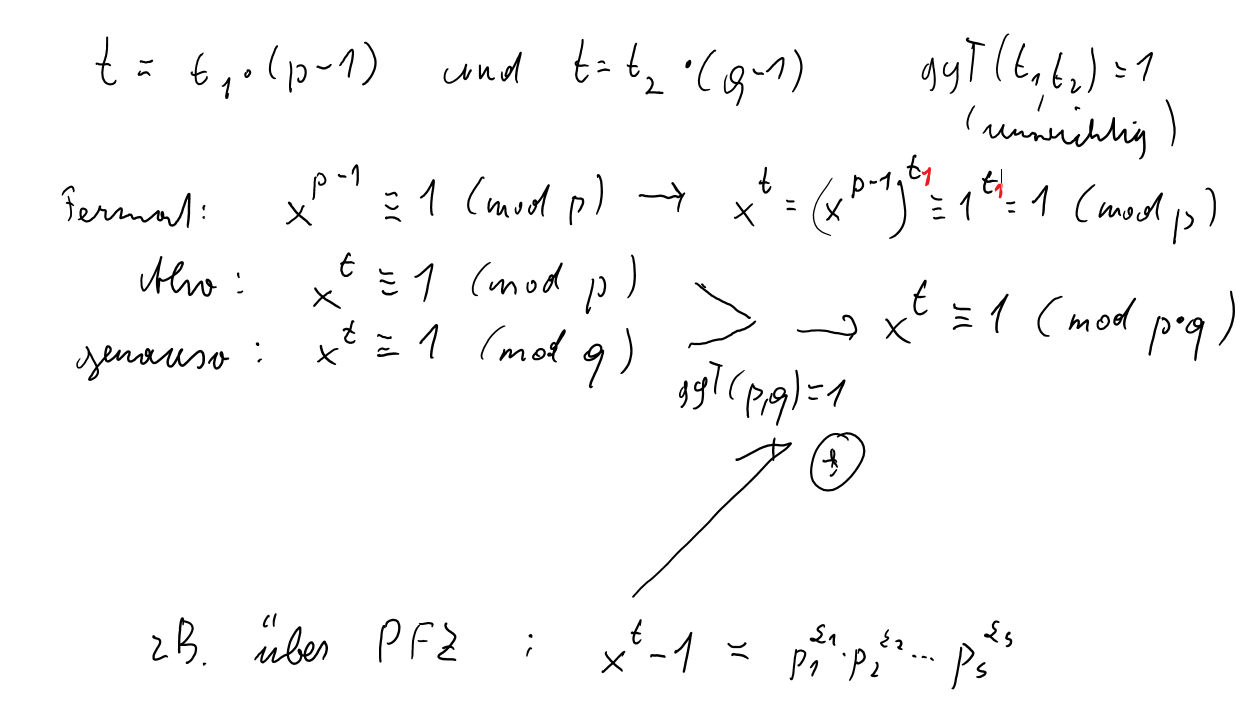 t = t₁ · (p-1) und t = t₂ · (q-1) ggT(t₁, t₂) = 1
(unwichtig)
Fermat: x^{p-1} ≡ 1 (mod p) → x^t = (x^{p-1})^{t₁} ≡ 1^{t₁} = 1 (mod p)
Also: x^t ≡ 1 (mod p)
→ x^t ≡ 1 (mod p·q)
genauso: x^t ≡ 1 (mod q)
ggT(p,q) = 1
zB. über PFZ : x^t - 1 = p₁^{ε₁} · p₂^{ε₂} ... p_s^{ε_s}